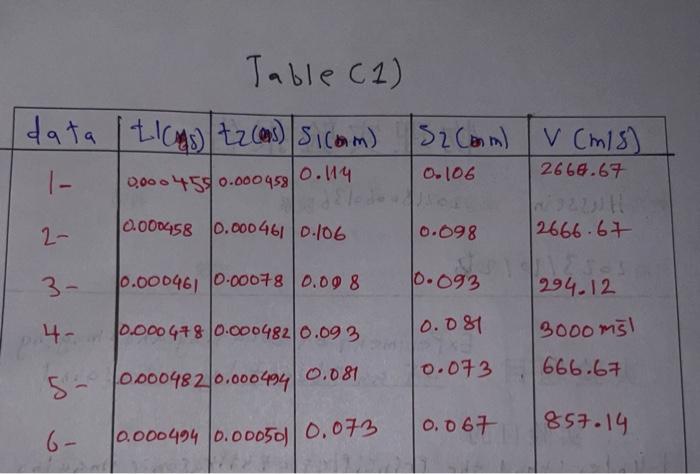 Table (1)
data t1(s) t2(s) S1(m) S2(m) V (m/s)
1- 0.000455 0.000458 0.114 0.106 2666.67
2- 0.000458 0.000461 0.106 0.098 2666.67
3- 0.000461 0.00078 0.098 0.093 294.12
4- 0.000478 0.000482 0.093 0.081 3000 ms1
5- 0.000482 0.000494 0.081 0.073 666.67
6- 0.000494 0.000501 0.073 0.067 857.14